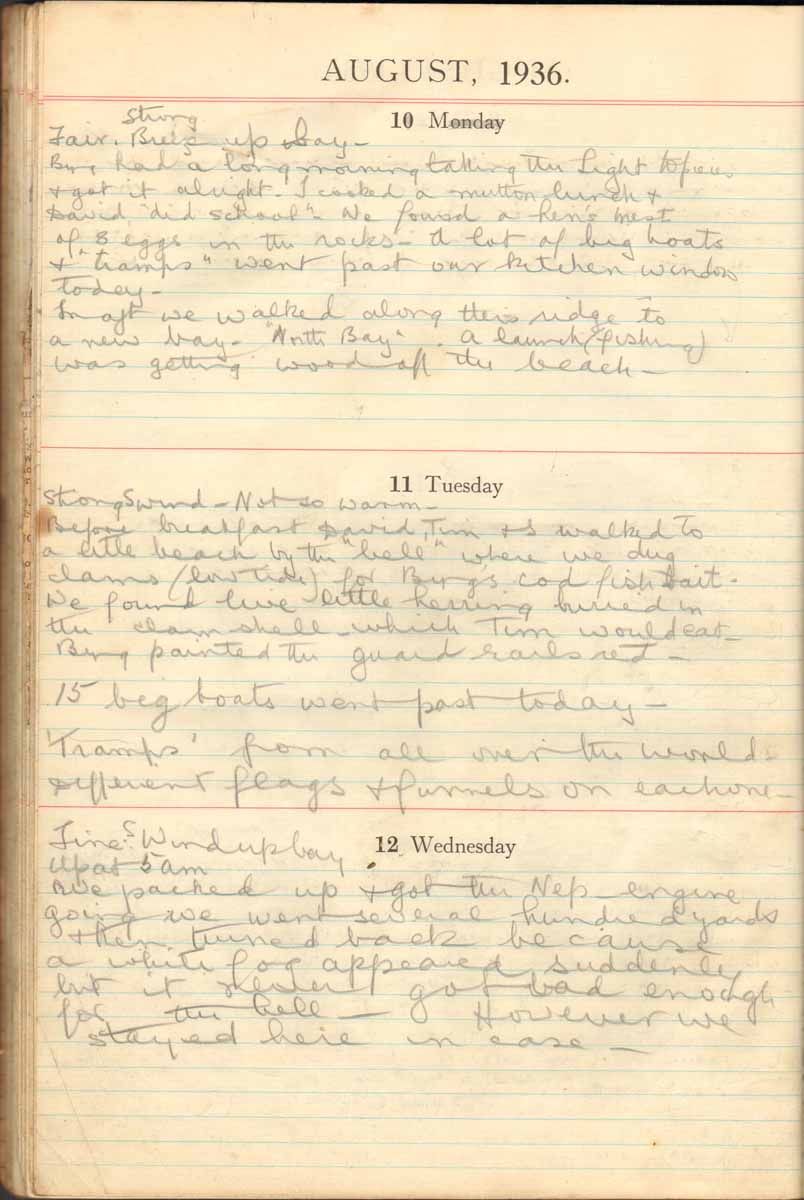 AUGUST, 1936.
10 Monday
Strong
Fair. Breeze up bay -
had a long morning taking the Light to pieces
& got it alright. I cooked a mutton lunch &
David "did school". We found a hen's nest
of 8 eggs in the rocks - A lot of big boats
& "tramps" went past our kitchen window
today -
In aft we walked along the ridge to
a new bay - "North Bay". A launch (fishing)
was getting wood off the beach -
11 Tuesday
Strong S wind - Not so warm -
Before breakfast David, Tim & I walked to
a little beach by the "bell" where we dug
clams (low tide) for cod fish bait -
We found live little herring buried in
the clam shell - which Tim would eat -
painted the guard rails red -
15 big boats went past today -
'Tramps' from all over the world -
Different flags & funnels on each one -
12 Wednesday
Fine. S Wind up bay
Up at 5 am
We packed up & got the Nep engine
going we went several hundred yards
& then turned back because
a white fog appeared suddenly
but it never got bad enough
for the bell - However we
stayed here in case -